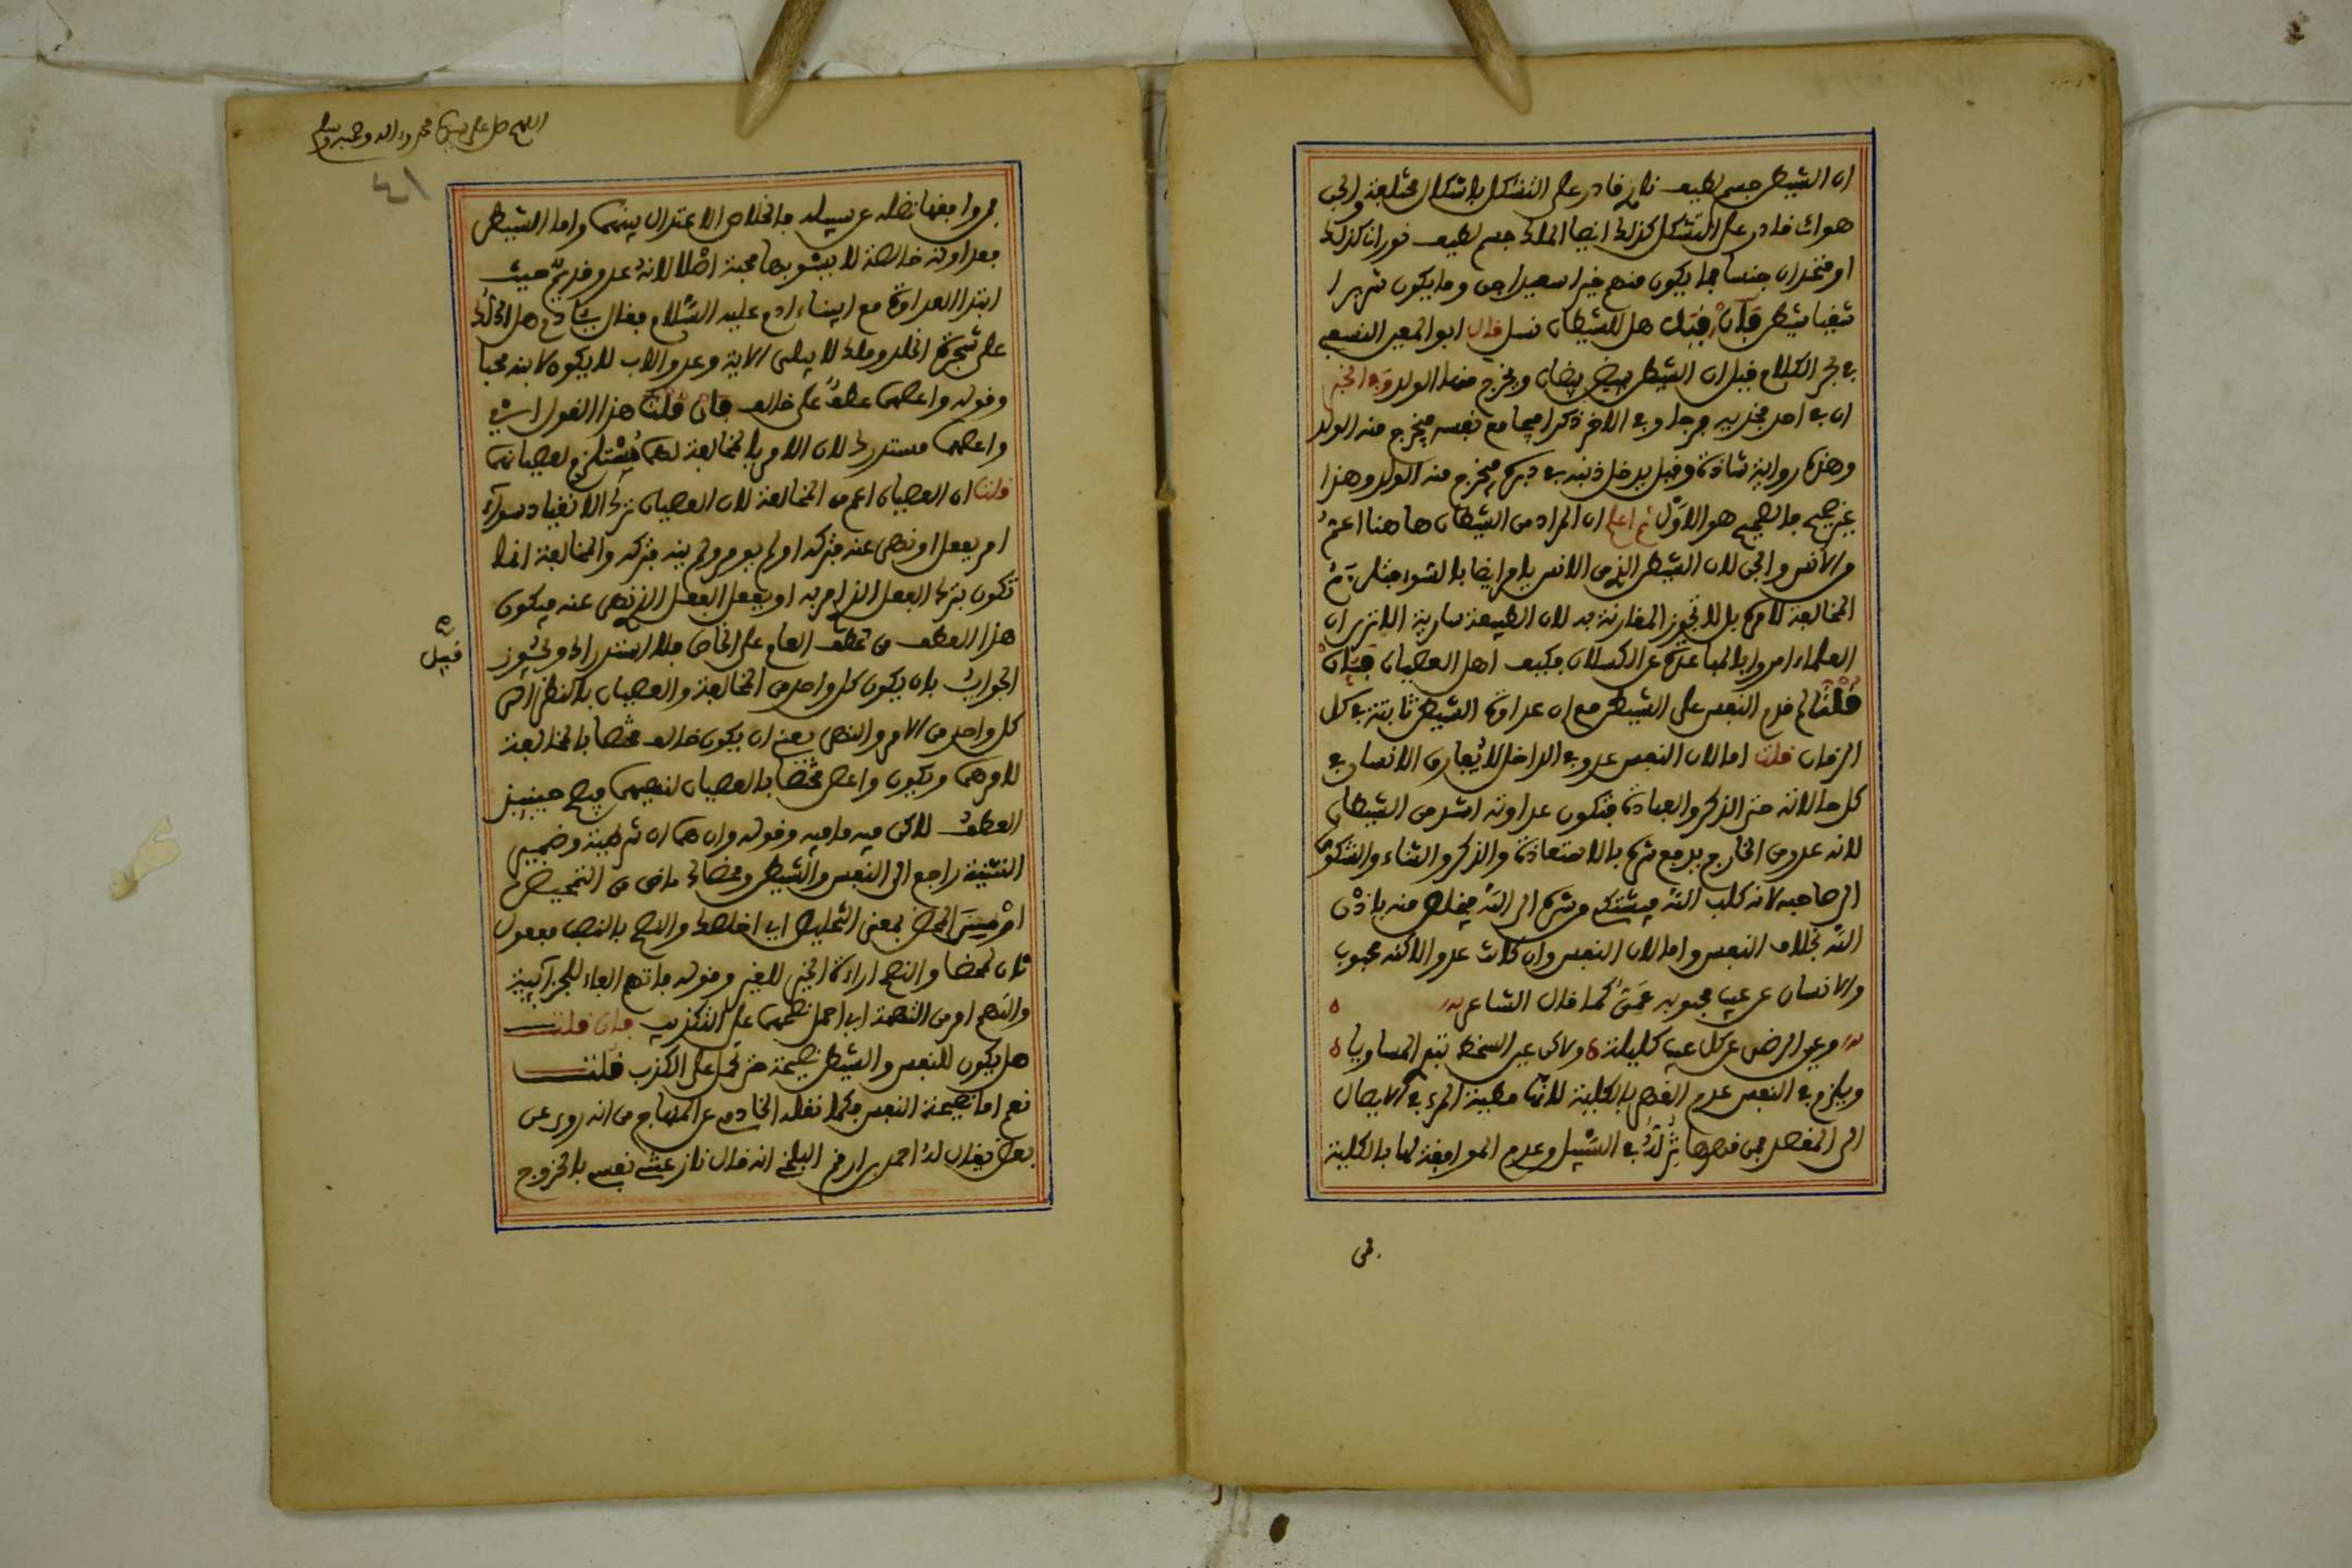 ان الشيطن جسم لطيف نارى قادر على التشكل باشكال مختلفة والجن
هوائ قادر على التشكل كذلك ايضا الملك جسم لطيف نورانى كذلك
او متحدان جنسا فما يكون منهم خيرا سعيدا جن وما يكون شريرا
شقيا شيطن فان قيل هل للشيطان نسل قال ابو المعين النسفى
فى بحر الكلام قيل ان الشيطن يبيض بيضات ويخرج منها الولد وفى الخبر
ان فى احد فخذيه فرجا وفى الاخر ذكرا فيجامع نفسه فيخرج منه الولد
وهذه رواية شاذة وقيل يدخل ذنبه فى دبره فيخرج منه الولد وهذا
غير صحيح فالصحيح هو الاول ثم اعلم ان المراد من الشيطان هاهنا اعم
من الانس والجن لان الشيطن الذى من الانس يامر ايضا بالسوء
المخالفة لامره بل لا تجوز المقارنة به لان الطبيعة سارية الا ترى ان
العلماء امروا بالمباعدة عن الكسلان فكيف اهل العصيان فان
قلت لم قدم النفس على الشيطن مع ان عداوة الشيطن ثابتة فى كل
الزمان قلت اما لان النفس عدو فى الداخل لا يفارق الانسان فى
كل حالاته حتى الذكر والعبادة فتكون عداوته اشد من الشيطان
لانه عدو من الخارج يدفع شره بالاستعاذة والذكر والثناء والشكوى
الى صاحبه لانه كلب الله فيشتكى من شره الى الله فيخلص منه باذن
الله بخلاف النفس واما لان النفس وان كانت عدوا لاكنه محبوب
والانسان عن عيب محبوبه عمى كما قال الشاعر
وعين الرضى عن كل عيب كليلة ولاكن عين السخط تبدى المساويا
ويلزم فى النفس عدم القهر بالكلية لانها مطية المرء فى الايصال
الى المقصد فمن قهرها نزلت فى السبيل وعدم الموافقة لها بالكلية
فمن
اللهم صل على سيدنا محمد وءاله وصحبه وسلم
فمن وافقها تضله عن سبيله فالخلاص الاعتدال بينهما واما الشيطن
فعداوته خالصة لا يشوبها محبة اصلا لانه عدو قديم حيث
ابتدا العداوة مع ابينا ءادم عليه السلام فقال يا ادم هل ادلك
على شجرة الخلد وملك لا يبلى الاية وعدو الاب لا يكون لابنه محبا
وقوله واعصهما عطف على خالف فان قلت هذا القول اى
واعصهما مستدرك لان الامر بالمخالفة لهما يستلزم لعصيانهما
قلت ان العصيان اعم من المخالفة لان العصيان ترك الانقياد سواء
امر بفعل او نهى عنه فتركه او لم يومر ولم ينه فتركه والمخالفة انما
تكون بترك الفعل الذى امر به او بفعل الفعل الذى نهى عنه فيكون
هذا العطف من عطف العام على الخاص فلا استدراك ويجوز
قيل
الجواب بان يكون كل واحد من المخالفة والعصيان بالنظر الى
كل واحد من الامر والنهى يعنى ان يكون خالف مختصا بالمخالفة
لامرهما ويكون واعص مختصا بالعصيان لنهيهما فيصح حينئذ
العطف لاكن فيه ما فيه وقوله وان هما ان شرطية وضمير
التثنية راجع الى النفس والشيطن ومحضاك ماض من التمحيض
بمعنى التخليص اى اخلصاك والنصح بالنصب مفعول
ثان لمحضا والنصح ارادة الخير للغير وقوله فاتهم الفاء للجزآئية
واتهم امر من التهمة اى احمل نصحهما على التكذيب فان قلت
هل يكون للنفس والشيطن نصيحة حتى تحمل على الكذب قلت
نعم اما نصيحة النفس فكما نقله الخادمى عن المنهاج من انه روى عن
بعض يقال له احمد بن ارقم البلخى انه قال نازعتنى نفسى بالخروج